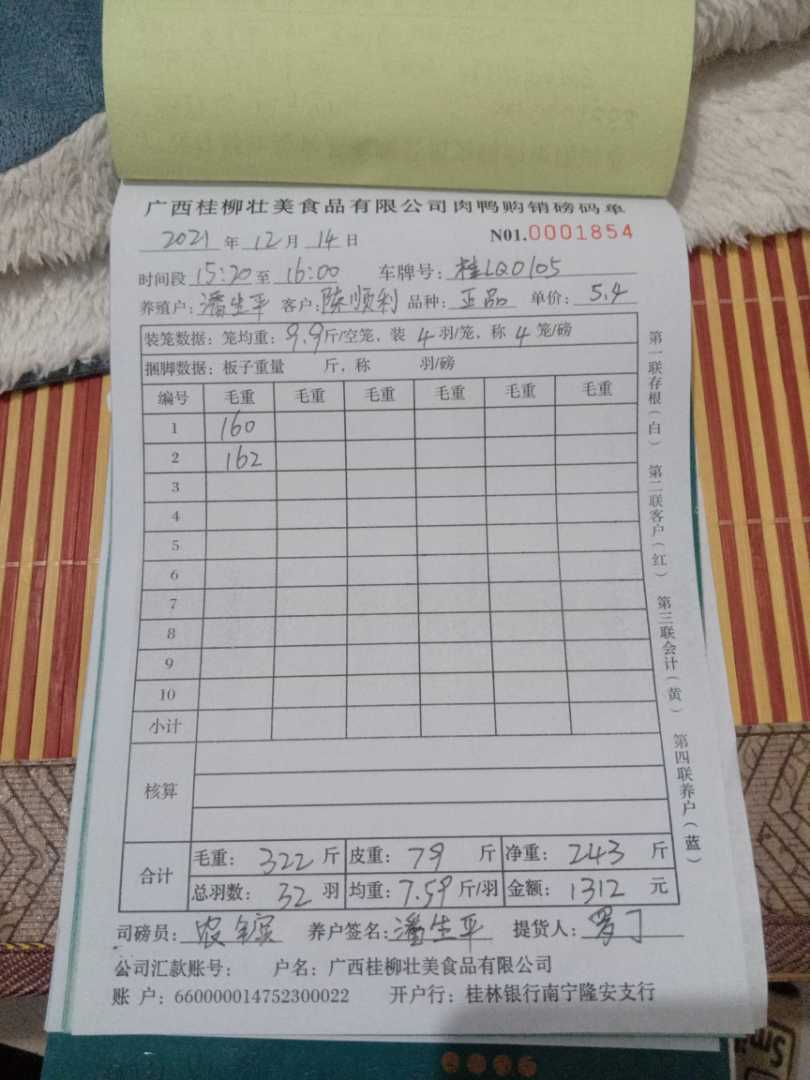 广西桂柳壮美食品有限公司肉鸭购销磅码单
2021年12月14日 N01.0001854
时间段15:20至16:00 车牌号：桂LQ0105
养殖户：潘生平 客户：陈顺利 品种：正品 单价：5.4
装笼数据：笼均重：9.9斤/空笼，装4羽/笼，称4笼/磅
捆脚数据：板子重量 斤，称 羽/磅
编号 毛重 毛重 毛重 毛重 毛重 毛重
1 160
2 162
3
4
5
6
7
8
9
10
小计
核算
合计 毛重：322斤 皮重：79斤 净重：243斤
总羽数：32羽 均重：7.59斤/羽 金额：1312元
司磅员：农 养户签名：潘生平 提货人：罗丁
公司汇款账号： 户名：广西桂柳壮美食品有限公司
账 户：660000014752300022 开户行：桂林银行南宁隆安支行
第一联存根（白） 第二联客户（红） 第三联会计（黄） 第四联养户（蓝）